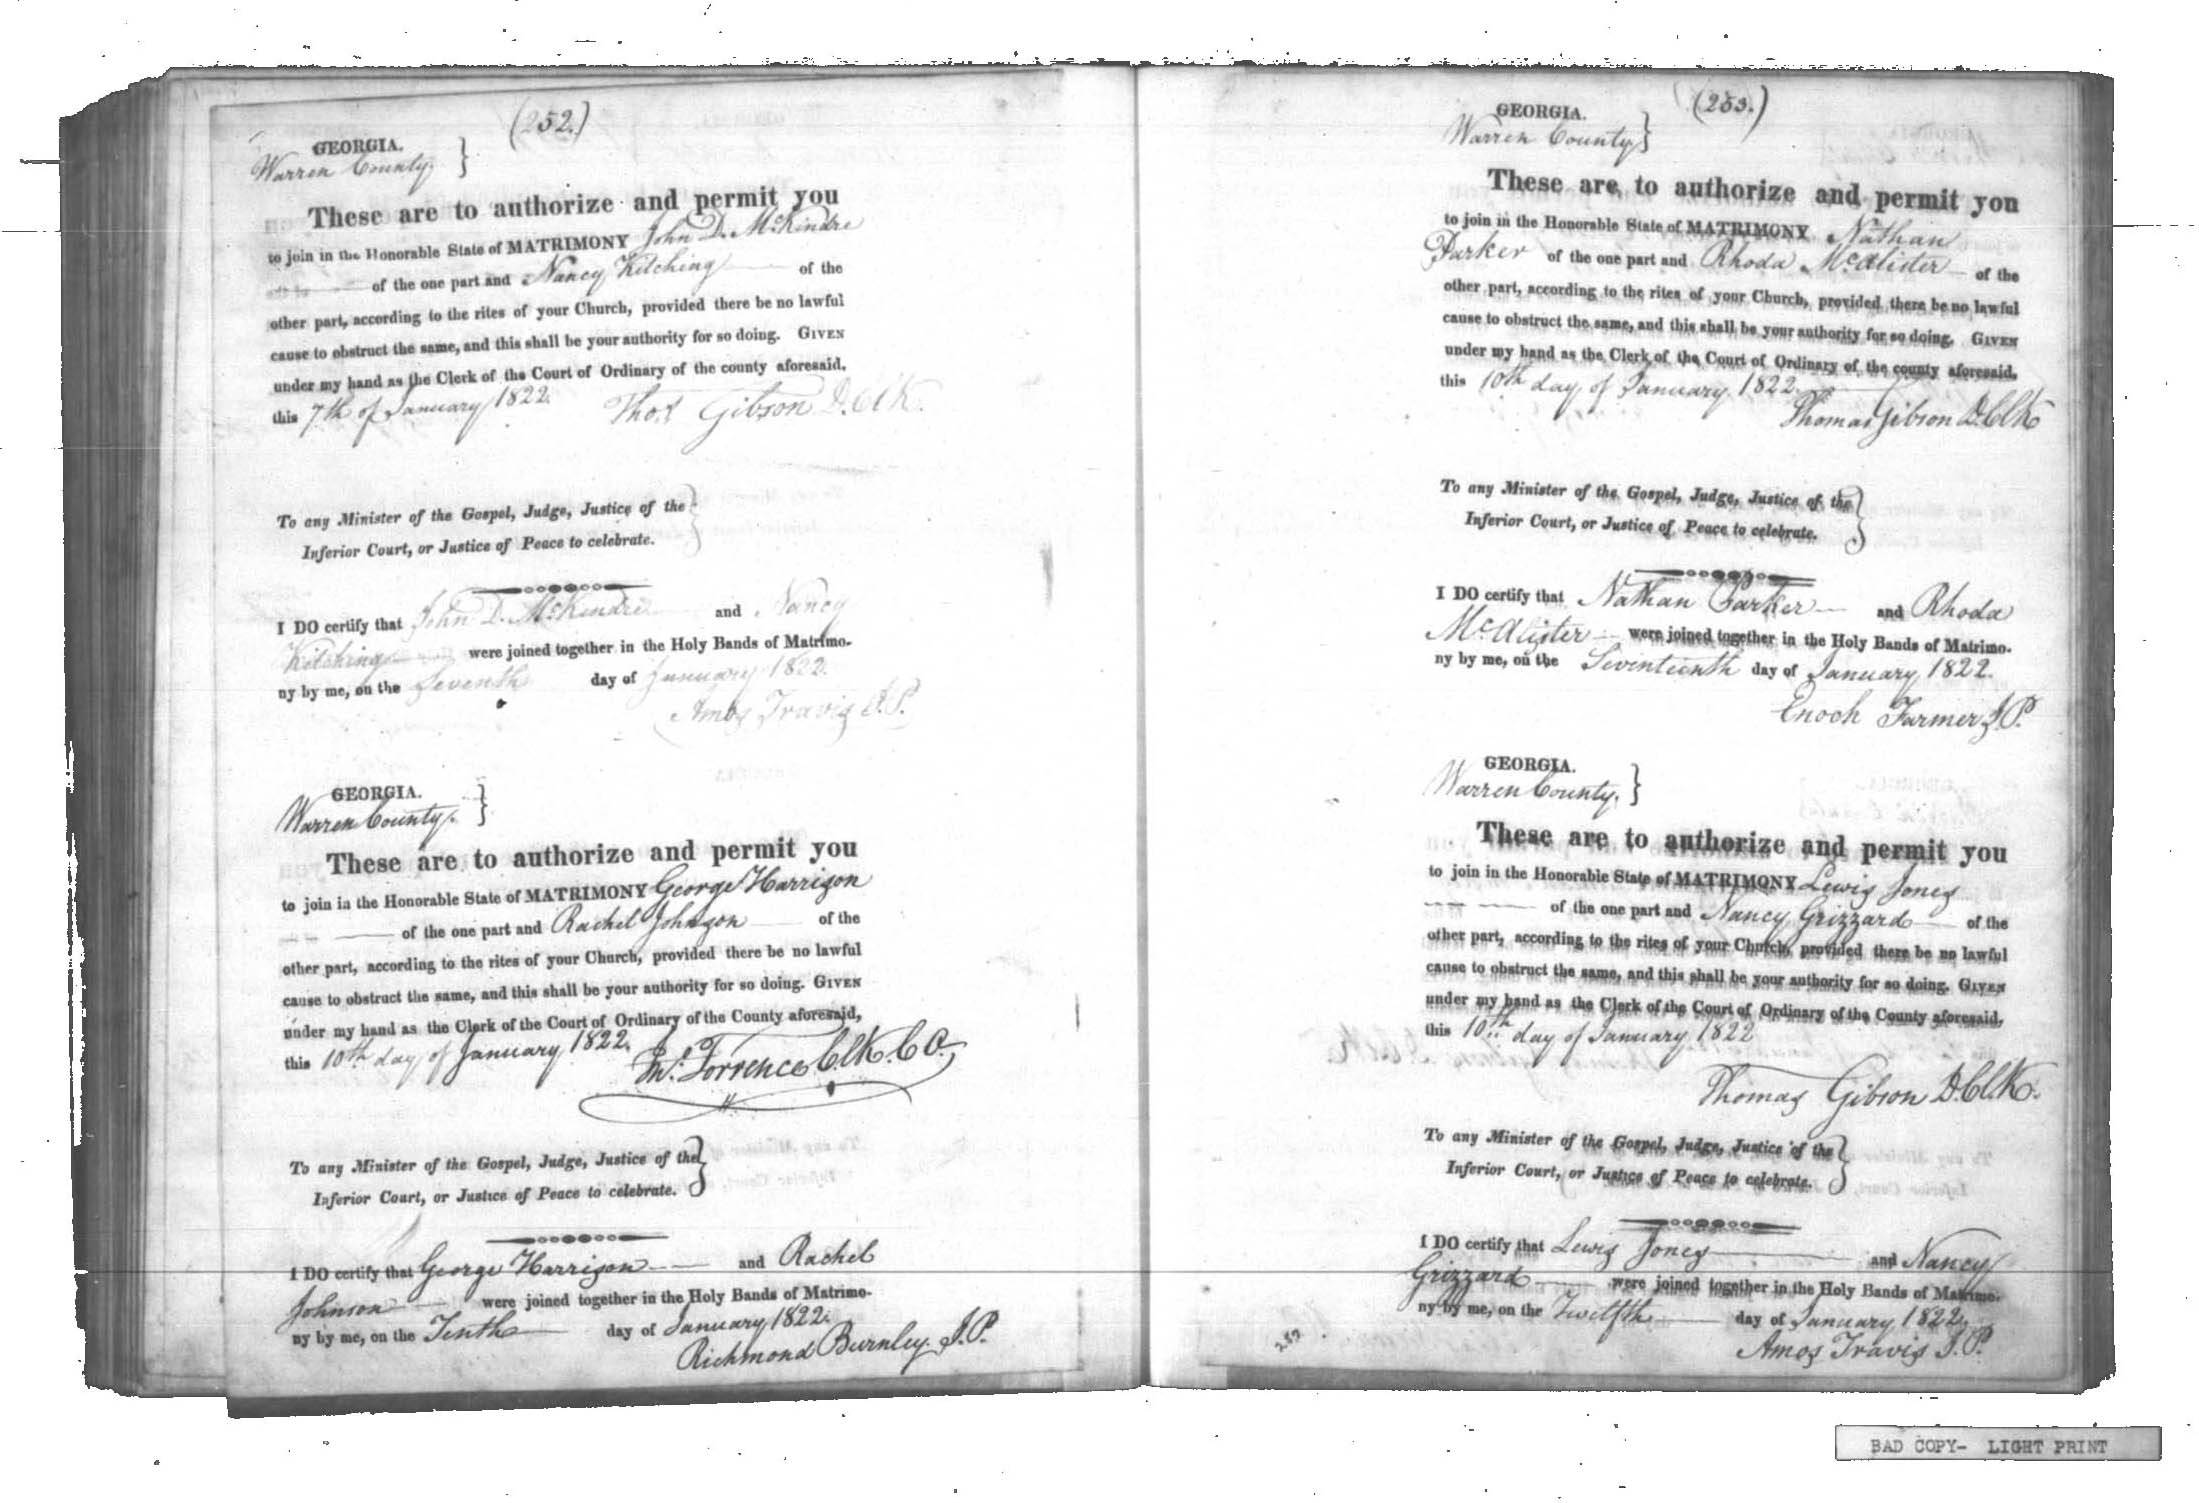 (252.)
GEORGIA.
Warren County. }
These are to authorize and permit you
to join in the Honorable State of MATRIMONY John D. McKindre
of the one part and Nancy Kitching of the
other part, according to the rites of your Church, provided there be no lawful
cause to obstruct the same, and this shall be your authority for so doing. GIVEN
under my hand as the Clerk of the Court of Ordinary of the county aforesaid,
this 7th of January 1822. Thos Gibson D. Clk.
To any Minister of the Gospel, Judge, Justice of the }
Inferior Court, or Justice of Peace to celebrate.
I DO certify that John D. McKindre and Nancy
Kitching were joined together in the Holy Bands of Matrimo-
ny by me, on the Seventh day of January 1822.
Amos Travis J.P.
GEORGIA.
Warren County. }
These are to authorize and permit you
to join in the Honorable State of MATRIMONY George Harrison
of the one part and Rachel Johnson of the
other part, according to the rites of your Church, provided there be no lawful
cause to obstruct the same, and this shall be your authority for so doing. GIVEN
under my hand as the Clerk of the Court of Ordinary of the County aforesaid,
this 10th day of January 1822. Jno. Torrence Clk. C.O.
To any Minister of the Gospel, Judge, Justice of the }
Inferior Court, or Justice of Peace to celebrate.
I DO certify that George Harrison and Rachel
Johnson were joined together in the Holy Bands of Matrimo-
ny by me, on the Tenth day of January 1822.
Richmond Burnley. J.P.
(253.)
GEORGIA.
Warren County }
These are to authorize and permit you
to join in the Honorable State of MATRIMONY Nathan
Parker of the one part and Rhoda McAlister of the
other part, according to the rites of your Church, provided there be no lawful
cause to obstruct the same, and this shall be your authority for so doing. GIVEN
under my hand as the Clerk of the Court of Ordinary of the county aforesaid,
this 10th day of January 1822.
Thomas Gibson D. Clk
To any Minister of the Gospel, Judge, Justice of the }
Inferior Court, or Justice of Peace to celebrate.
I DO certify that Nathan Parker and Rhoda
McAlister were joined together in the Holy Bands of Matrimo-
ny by me, on the Seventeenth day of January 1822.
Enoch Farmer J.P.
GEORGIA.
Warren County. }
These are to authorize and permit you
to join in the Honorable State of MATRIMONY Lewis Jones
of the one part and Nancy Grizzard of the
other part, according to the rites of your Church, provided there be no lawful
cause to obstruct the same, and this shall be your authority for so doing. GIVEN
under my hand as the Clerk of the Court of Ordinary of the County aforesaid,
this 10th day of January 1822
Thomas Gibson D. Clk.
To any Minister of the Gospel, Judge, Justice of the }
Inferior Court, or Justice of Peace to celebrate.
I DO certify that Lewis Jones and Nancy
Grizzard were joined together in the Holy Bands of Matrimo-
ny by me, on the Twelfth day of January 1822.
Amos Travis J.P.
BAD COPY- LIGHT PRINT